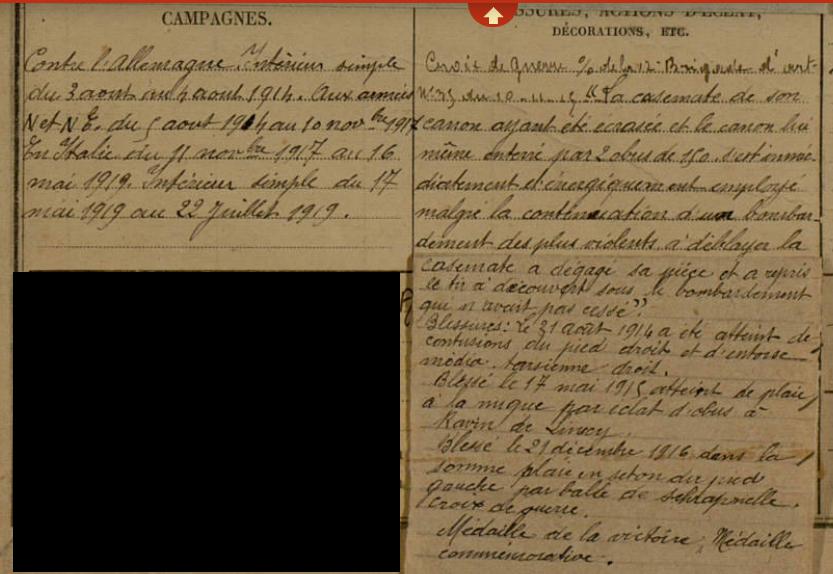 CAMPAGNES.
Contre l'Allemagne. Intérieur simple
du 3 aout au 4 aout 1914. Aux armées
N et N E. du 5 aout 1914 au 10 novbre 1917
En Italie du 11 novbre 1917 au 16
mai 1919. Intérieur simple du 17
mai 1919 au 22 Juillet 1919.
BLESSURES, ACTIONS D'ÉCLAT,
DÉCORATIONS, ETC.
Croix de guerre o/o de la 12e Brigade d'art
N° 35 du 10-11-15 "La casemate de son
canon ayant été écrasée et le canon lui
même enterré par 2 obus de 150. s'est immé-
diatement et énergiquement employé
malgré la continuation d'un bombar-
dement des plus violents à déblayer la
casemate a dégagé sa pièce et a repris
le tir à découvert sous le bombardement
qui n'avait pas cessé".
Blessures: le 31 août 1914 a été atteint de
contusions du pied droit et d'entorse
médio tarsienne droit.
Blessé le 17 mai 1915 atteint de plaie
à la nuque par éclat d'obus à
Ravin de
Blessé le 21 décembre 1916 dans la
somme plaie en seton du pied
gauche par balle de schrapnelle.
Croix de guerre.
Médaille de la victoire, Médaille
commémorative.